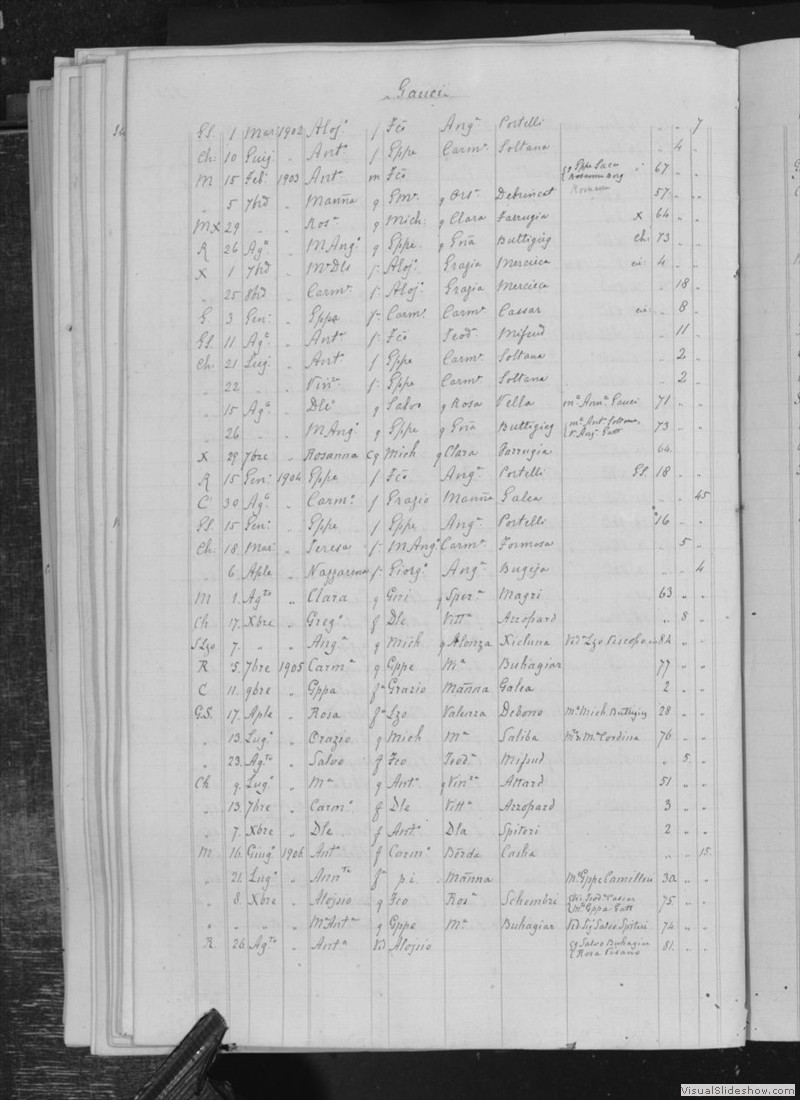 Gauci
Gl. 1 Mar. 1902 Aloj.o f Fco Ang.a Portelli " " 7
Ch: 10 Giug. " Ant.a f Gppe Carm.a Soltana " 4 "
M 15 Feb. 1903 Ant.a m Fco 67 " "
" 5 7brd " Manña g Em.o g Ors.a Debrincat 57 " "
MX 29 " " Ros.a g Mich: g Clara Farrugia X 64 " "
R 26 Ag.o " M Ang.a g Gppe g Gña Buttigieg Ch: 73 " "
X 1 7brd " M.a Dle f Aloj. Grazia Mercieca 4 " "
" 25 8brd " Carm.a f Aloj. Grazia Mercieca " 18 "
G. 3 Gen. " Gppa f Carm. Carm.a Cassar " 8 "
Gl. 11 Ag.o " Ant.a f Fco Teod.a Mifsud " 11 "
Ch: 21 Lug. " Ant.a f Gppe Carm.a Soltana " 2 "
" 22 " " Vin.a f Gppe Carm.a Soltana " 2 "
" 15 Ag.o " Dle g Salvo g Rosa Vella m.o Ann.a Gauci 71 " "
" 26 " " M Ang.a g Gppe g Gña Buttigieg 73 " "
X 29 7bre " Rosanna cg Mich g Clara Farrugia 64 " "
R 15 Gen. 1904 Gppe f Fco Ang.a Portelli Gl. 18 " "
C 30 Ag.o " Carm.o f Grazio Manña Galea " " 45
Gl. 15 Gen. " Gppe f Gppe Ang.a Portelli 16 " "
Ch: 18 Mar. " Teresa f M Ang.o Carm.a Formosa " 5 "
" 6 Aple " Nazzarena f Giorg.o Ang.a Bugeja " " 4
M 1 Ag.to " Clara g Gori g Sper.a Magri 63 " "
Ch 17 Xbre " Greg.o f Dle Vitt.a Azzopard " 8 "
S.Lzo 7 " " Ang.a g Mich g Alonza Xicluna 84 " "
R 5 7bre 1905 Carm.a g Gppe M.a Buhagiar 77 " "
C 11 9bre " Gppa f.a Grazio Manna Galea 2 " "
G.S. 17 Aple " Rosa f.a Lzo Valenza Debono M.o Mich. Buttigieg 28 " "
" 13 Lug.o " Orazio g Mich M.a Saliba M.a Cordina 76 " "
" 23 Ag.to " Salvo f Fco Teod.a Mifsud " 5 "
Ch 9 Lug.o " M.a g Ant.o g Vin.za Attard 51 " "
" 13 7bre " Carm.o f Dle Vitt.a Azzopard 3 " "
" 7 Xbre " Dle f Ant.o Dla Spiteri 2 " "
M 16 Giug.o 1906 Ant.o f Carm.o Borda Casha " " 15
" 21 Lug.o " Ann.ta f.a p.i. Manna M.o Gppe Camilleri 30 " "
" 8 Xbre " Aloysio g Fco Ros.a Schembri 75 " "
" " " M.a Ant.a g Gppe M.a Buhagiar Vd Sig Salvo Spiteri 74 " "
R. 26 Ag.to " Ant.a Vd Aloysio Salvo Buhagiar Rosa Pisano 81 " "
VisualSlideshow.com